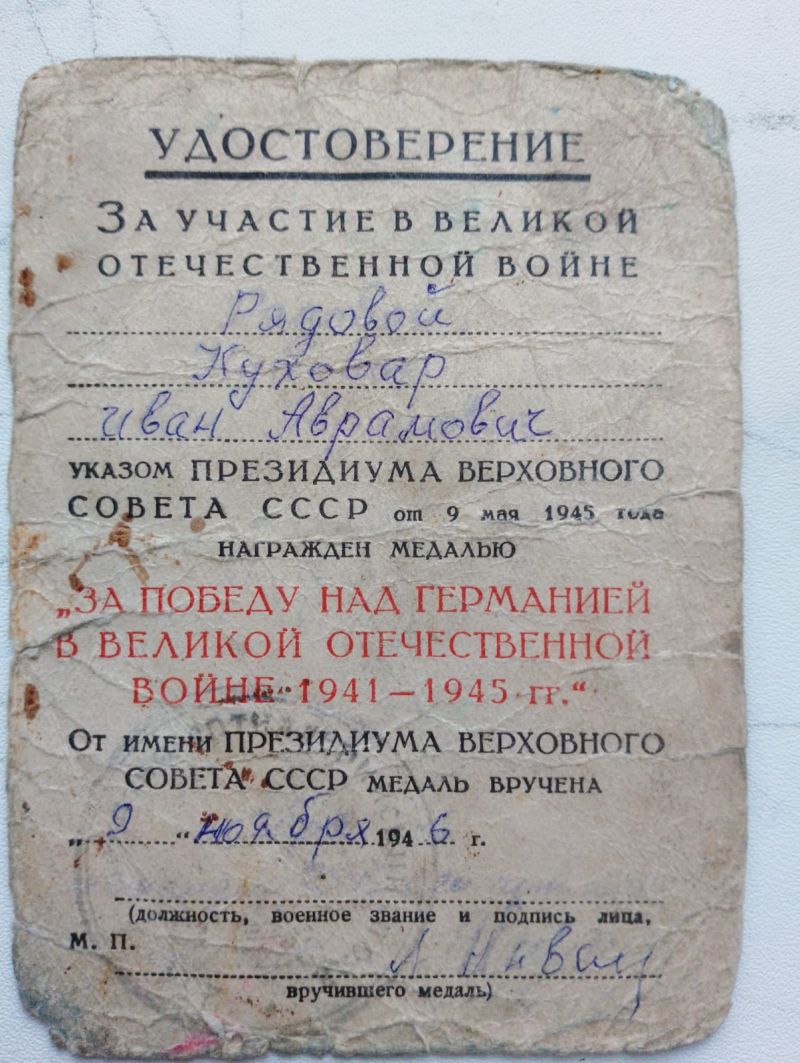 УДОСТОВЕРЕНИЕ
ЗА УЧАСТИЕ В ВЕЛИКОЙ
ОТЕЧЕСТВЕННОЙ ВОЙНЕ
Рядовой
Куховар
Иван Аврамович
УКАЗОМ ПРЕЗИДИУМА ВЕРХОВНОГО
СОВЕТА СССР от 9 мая 1945 года
НАГРАЖДЕН МЕДАЛЬЮ
„ЗА ПОБЕДУ НАД ГЕРМАНИЕЙ
В ВЕЛИКОЙ ОТЕЧЕСТВЕННОЙ
ВОЙНЕ 1941—1945 гг.“
ОТ ИМЕНИ ПРЕЗИДИУМА ВЕРХОВНОГО
СОВЕТА СССР МЕДАЛЬ ВРУЧЕНА
„9“ ноября 1946 г.
(должность, военное звание и подпись лица,
М. П.
вручившего медаль)